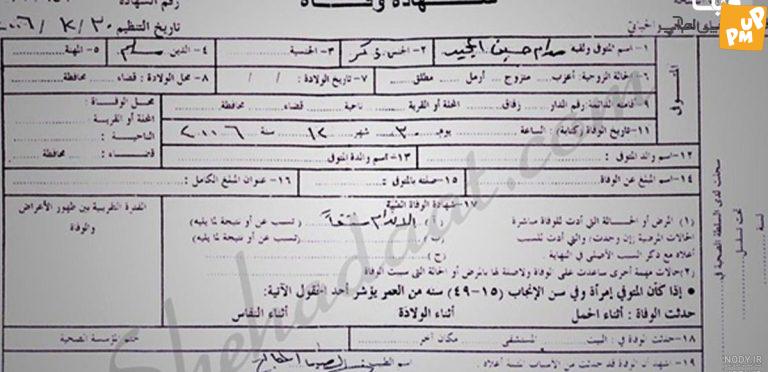 شهادة وفاة
رقم الشهادة
تاريخ التنظيم ٣٠ / ٢٠٠٦
١- اسم المتوفى ولقبه صدام حسين المجيد ٢- الجنس ذكر ٣- الجنسية ٤- الدين مسلم ٥- المهنة
٦- الحالة الزوجية: أعزب متزوج أرمل مطلق ٧- تاريخ الولادة: / / ٨- محل الولادة: قضاء محافظة
المتوفى
٩- اقامته الدائمة: رقم الدار زقاق المحلة أو القرية ناحية قضاء محافظة
محل الوفاة:
المحلة أو القرية:
الناحية:
قضاء: محافظة
١١- تاريخ الوفاة (كتابة): الساعة يوم ٣٠ شهر ١٢ سنة ٢٠٠٦
١٢- اسم والد المتوفى: ١٣- اسم والدة المتوفى:
١٤- اسم المبلغ عن الوفاة ١٥- صلته بالمتوفى: ١٦- عنوان المبلغ الكامل:
١٧- شهادة الوفاة الطبية
الفترة التقريبية بين ظهور الأعراض
والوفاة
(١) المرض أو الحالة التي أدت للوفاة مباشرة (أ) الاعدام شنقاً (تسبب عن أو نتيجة لما يليه)
الحالات المرضية (إن وجدت) والتي أدت للسبب (ب) (تسبب عن أو نتيجة لما يليه)
أعلاه مع ذكر السبب الأصلي في النهاية (ج)
(٢) حالات مهمة أخرى ساعدت على الوفاة ولا صلة لها بالمرض أو الحالة التي سببت الوفاة
• إذا كان المتوفي إمرأة وفي سن الإنجاب (١٥-٤٩) سنه من العمر يؤشر أحد الحقول الآتية:
حدثت الوفاة: أثناء الحمل أثناء الولادة أثناء النفاس
١٨- حدثت الوفاة في: البيت المستشفى مكان آخر
ختم المؤسسة الصحية
١٩- أشهد أن الوفاة قد حدثت من الأسباب المبينة أعلاه
سجلت لدى السلطة الصحية في
تحت تسلسل
لسنة
Shehadaat.com
UP
PM
NODY.IR